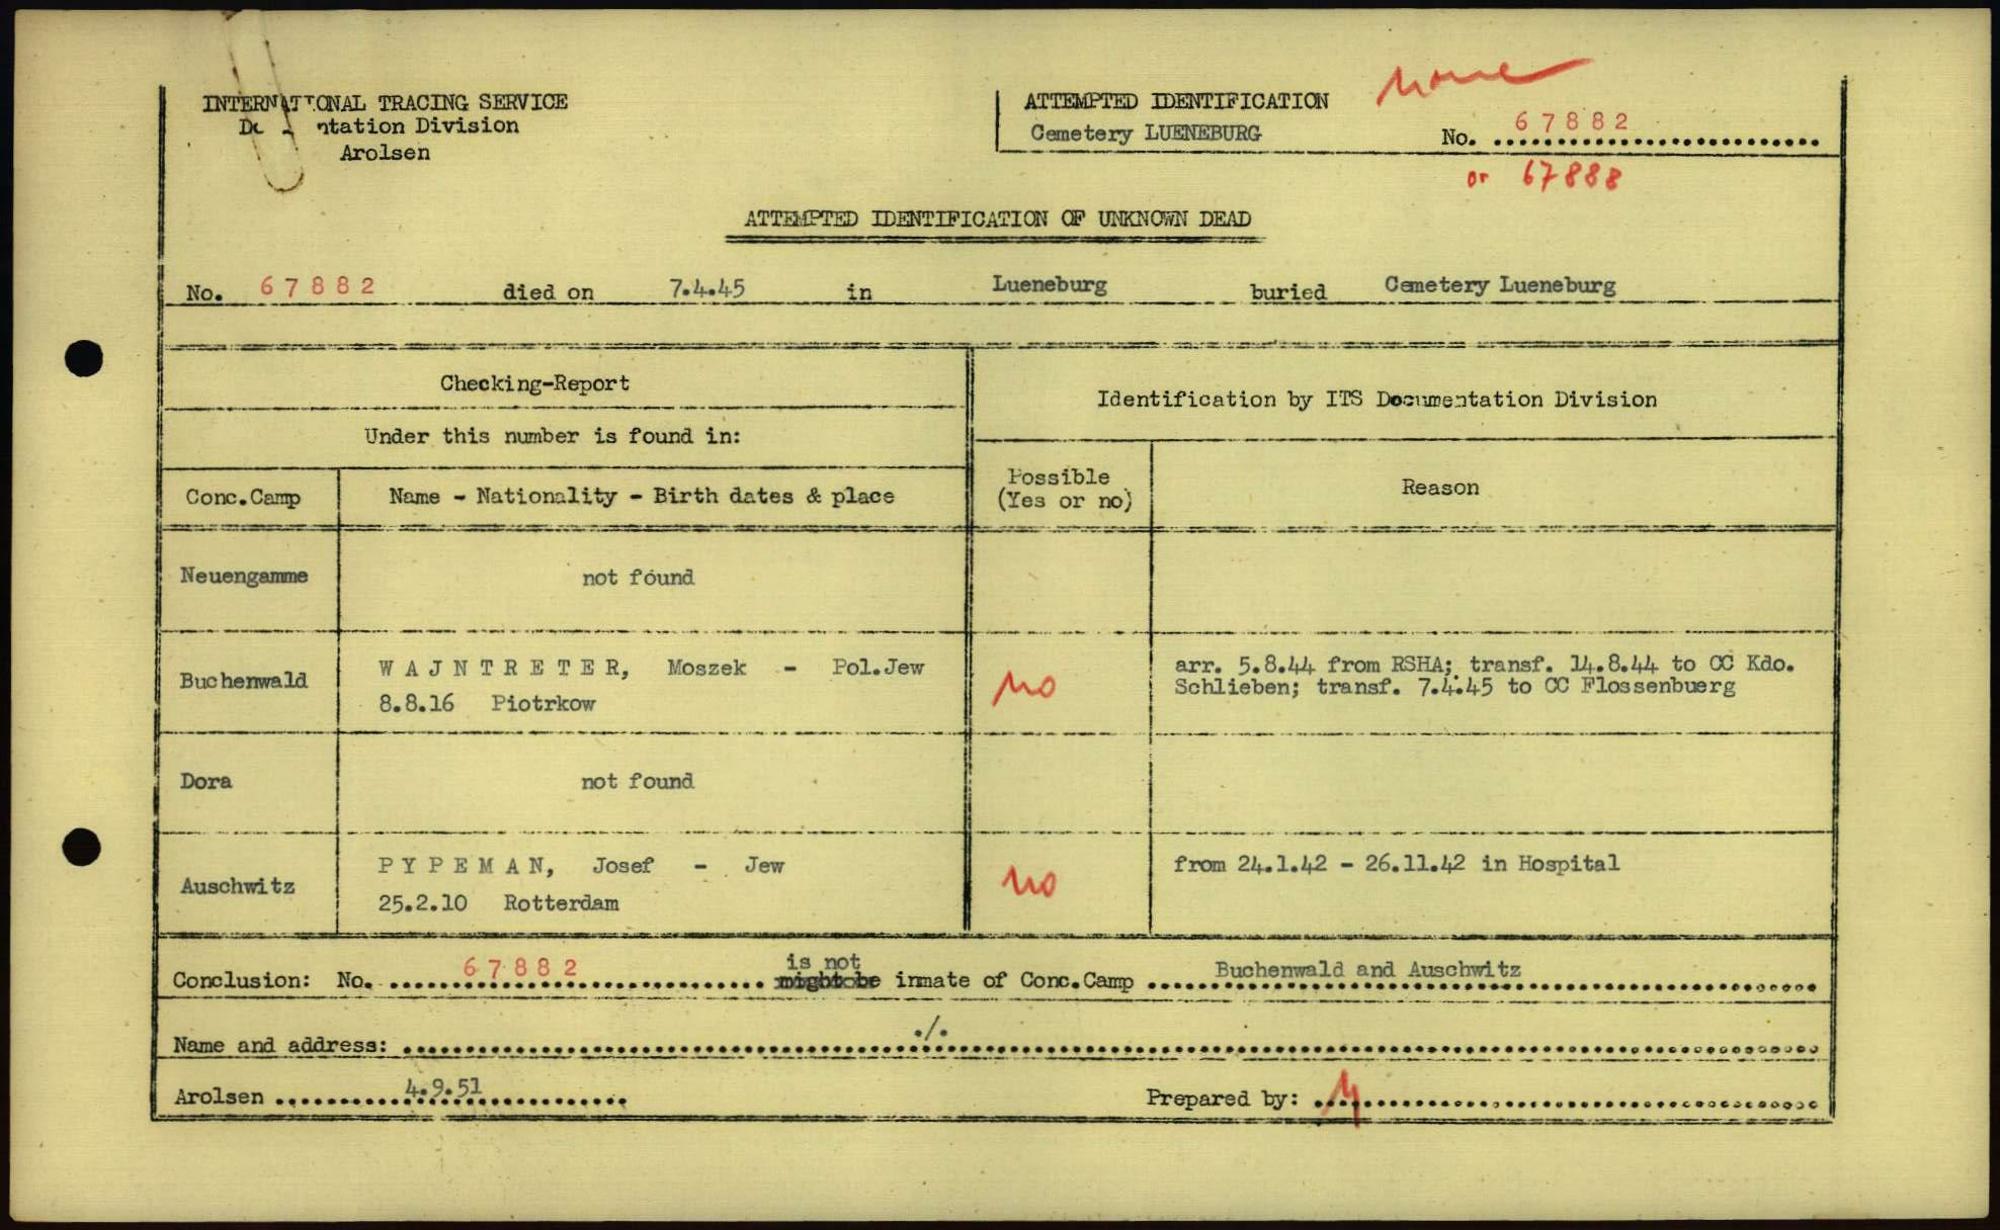 INTERNATIONAL TRACING SERVICE
Documentation Division
Arolsen
ATTEMPTED IDENTIFICATION
Cemetery LUENEBURG
No. 67882
or 67888
ATTEMPTED IDENTIFICATION OF UNKNOWN DEAD
No. 67882 died on 7.4.45 in Lueneburg buried Cemetery Lueneburg
Checking-Report
Under this number is found in:
Identification by ITS Documentation Division
Conc.Camp
Name - Nationality - Birth dates & place
Possible
(Yes or no)
Reason
Neuengamme
not found
Buchenwald
WAJNTRETER, Moszek - Pol.Jew
8.8.16 Piotrkow
no
arr. 5.8.44 from RSHA; transf. 14.8.44 to CC Kdo.
Schlieben; transf. 7.4.45 to CC Flossenbuerg
Dora
not found
Auschwitz
PYPEMAN, Josef - Jew
25.2.10 Rotterdam
no
from 24.1.42 - 26.11.42 in Hospital
is not
Conclusion: No. 67882 might be inmate of Conc.Camp Buchenwald and Auschwitz
Name and address: ./.
Arolsen 4.9.51
Prepared by: